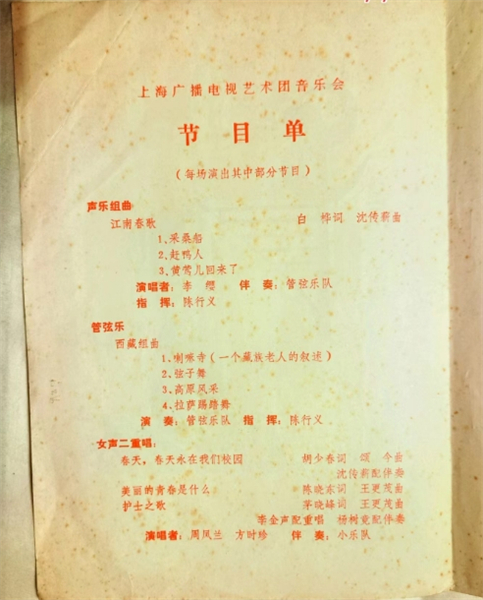 上海广播电视艺术团音乐会
节目单
(每场演出其中部分节目)
声乐组曲
江南春歌 白 桦词 沈传薪曲
1、采桑船
2、赶鸭人
3、黄莺儿回来了
演唱者：李 缨 伴 奏：管弦乐队
指 挥：陈行义
管弦乐
西藏组曲
1、喇嘛寺(一个藏族老人的叙述)
2、弦子舞
3、高原风采
4、拉萨踢踏舞
演 奏：管弦乐队 指 挥：陈行义
女声二重唱：
春天，春天永在我们校园 胡少春词 颂 今曲
沈传莉配伴奏
美丽的青春是什么 陈晓东词 王更茂曲
护士之歌 茅晓峰词 王更茂曲
李金声配重唱 杨树竟配伴奏
演唱者：周凤兰 方时珍 伴 奏：小乐队